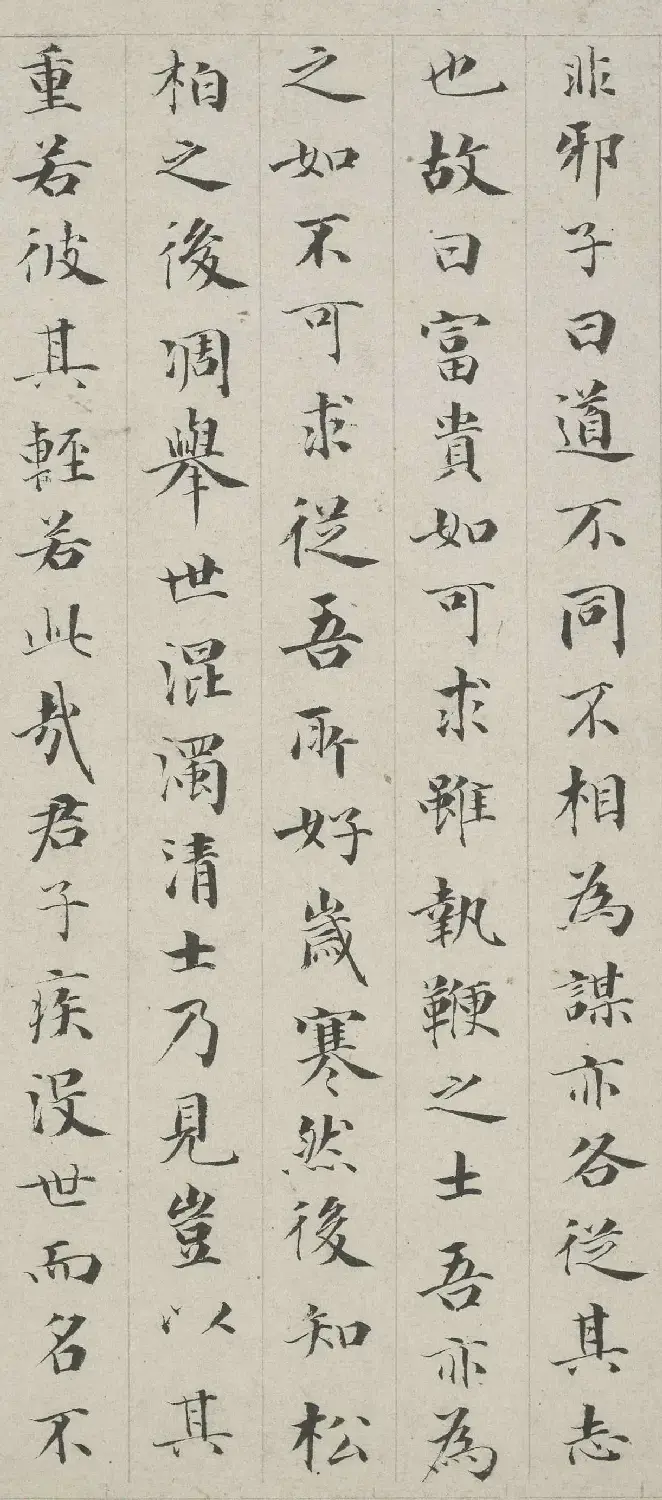 非邪子曰道不同不相為謀亦各從其志
也故曰富貴如可求雖執鞭之士吾亦為
之如不可求從吾所好歲寒然後知松
柏之後凋舉世混濁清士乃見豈以其
重若彼其輕若此哉君子疾沒世而名不